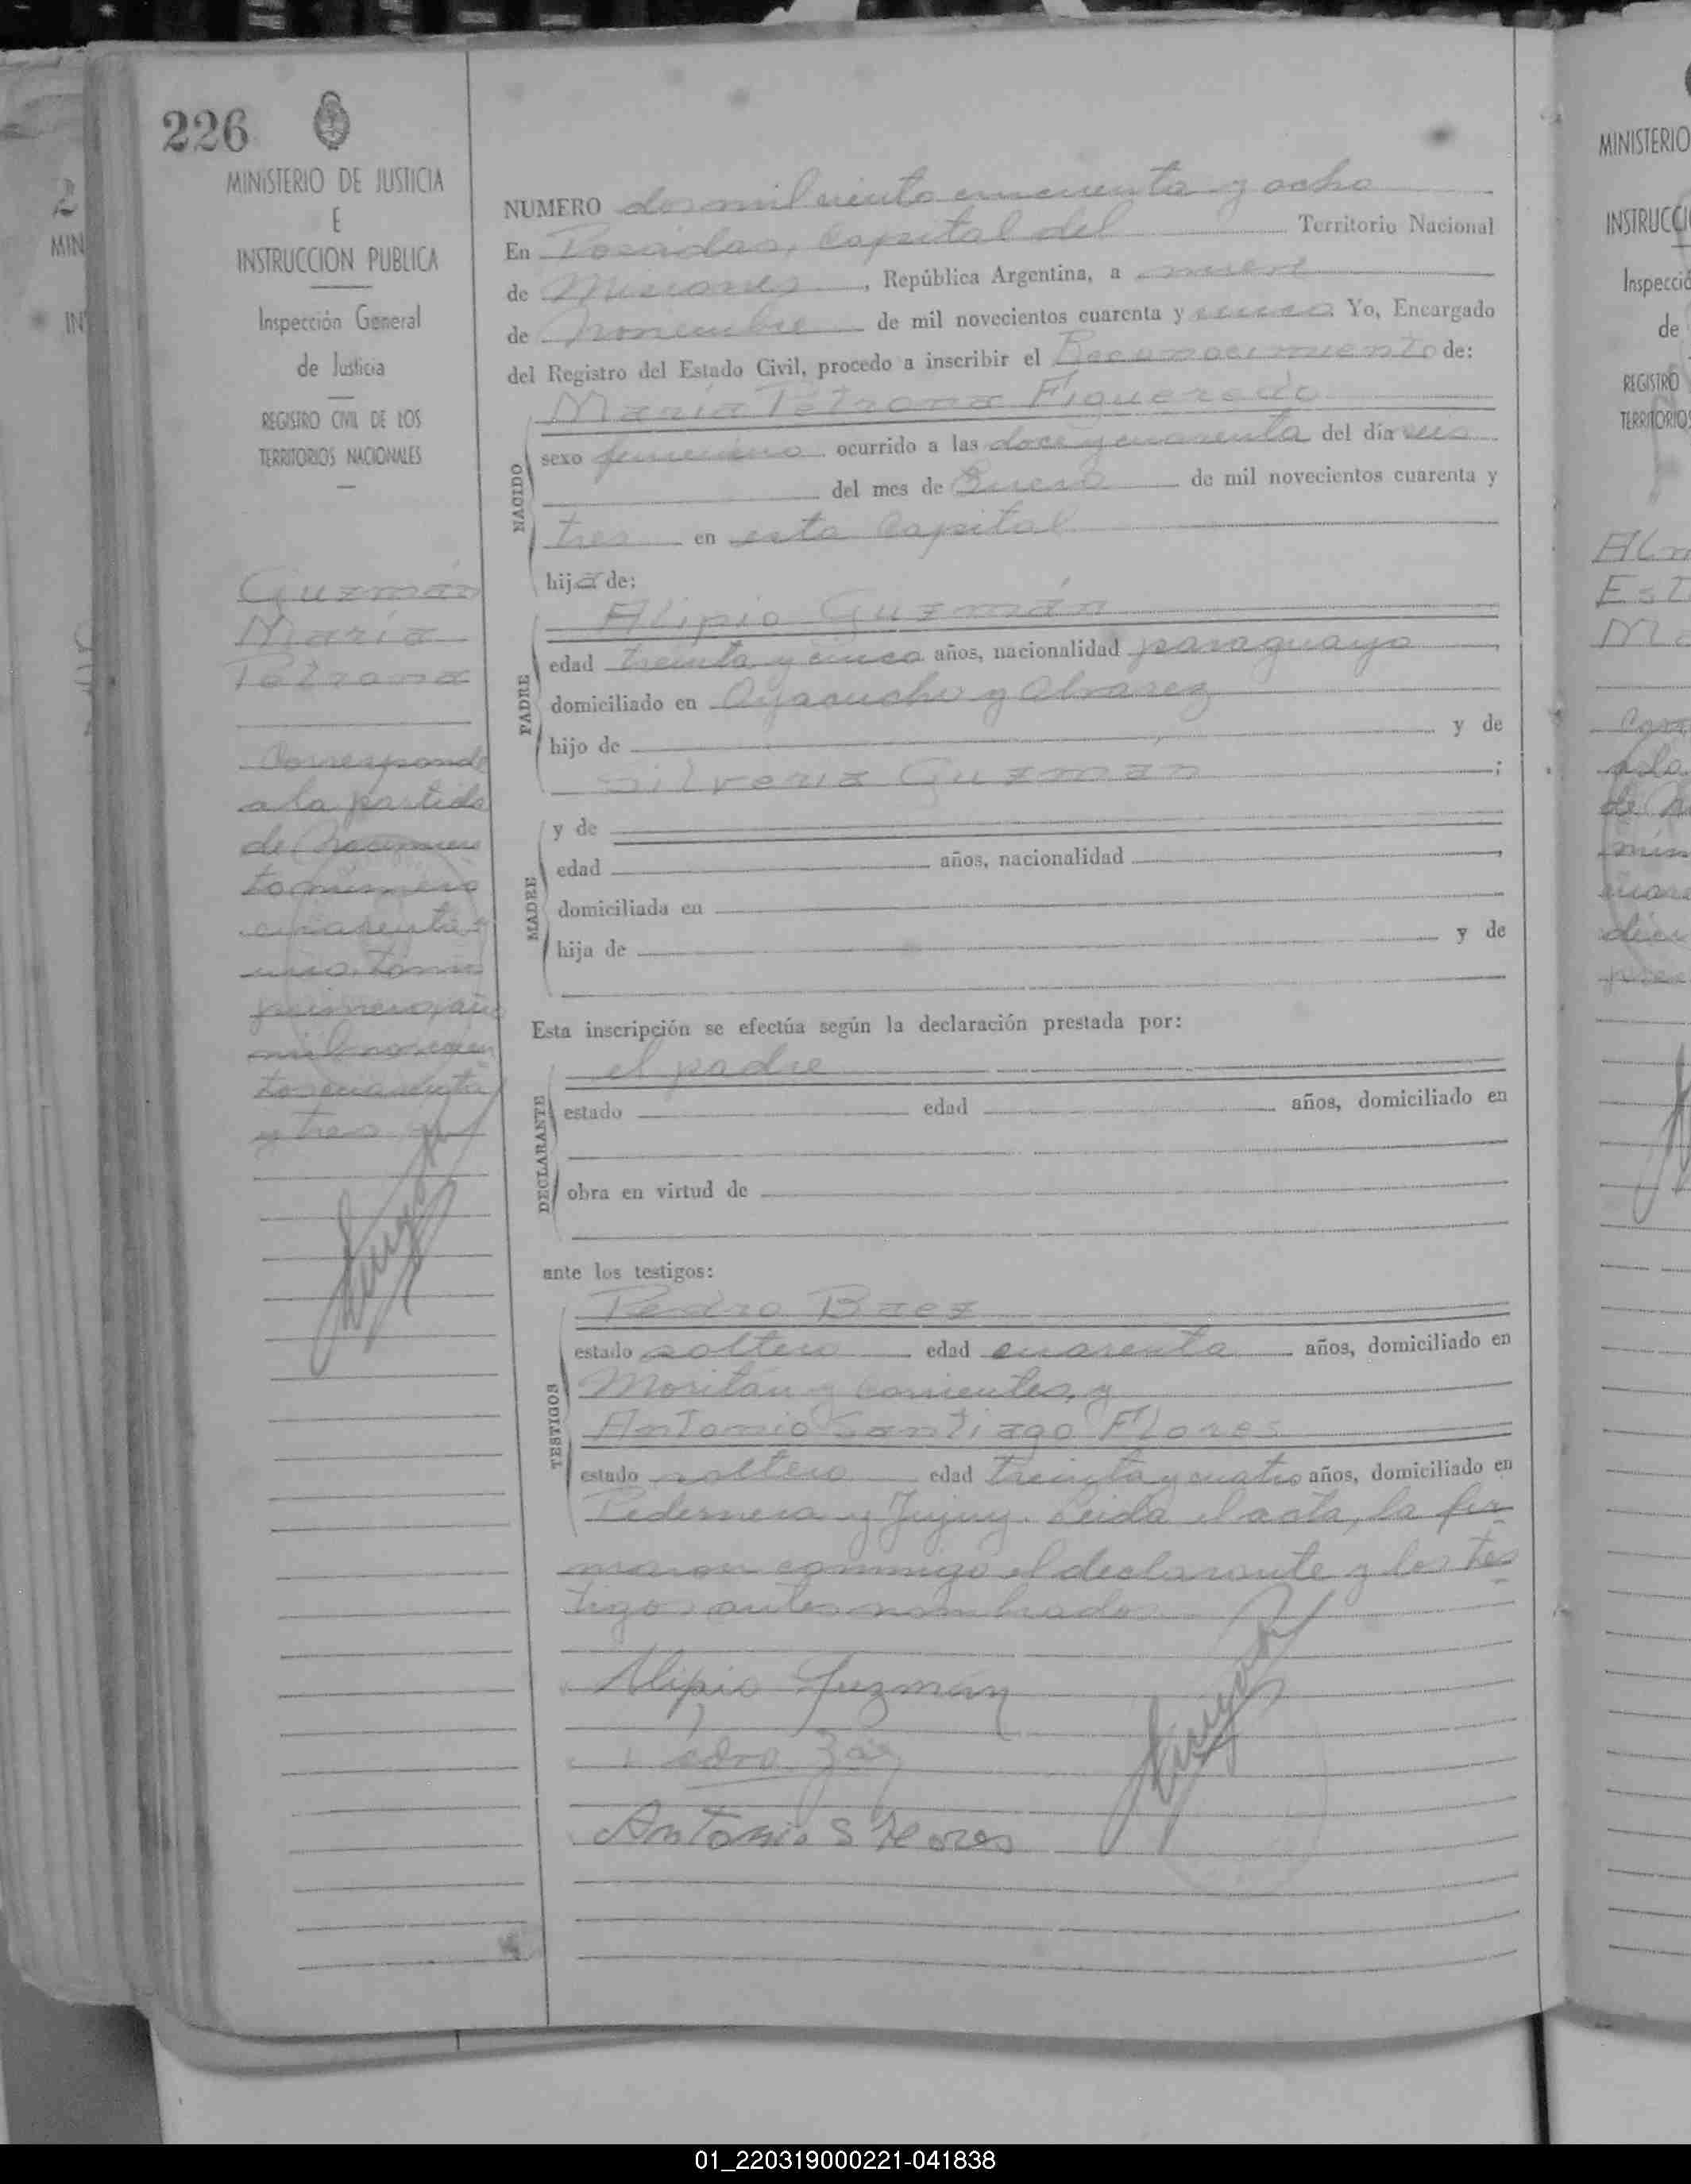 226
MINISTERIO DE JUSTICIA
E
INSTRUCCION PUBLICA
Inspección General
de Justicia
REGISTRO CIVIL DE LOS
TERRITORIOS NACIONALES
Guzmán
María
Petrona
Corresponde
a la partida
de Nacimien
to número
cuarenta y
uno, tomo
primero, año
mil novecien
tos cuarenta
y tres
NUMERO dos mil ciento cincuenta y ocho
En Posadas, Capital del Territorio Nacional
de Misiones, República Argentina, a nueve
de Noviembre de mil novecientos cuarenta y cinco Yo, Encargado
del Registro del Estado Civil, procedo a inscribir el Reconocimiento de:
María Petrona Figueredo
NACIDO
sexo femenino ocurrido a las doce y cuarenta del día seis
del mes de Enero de mil novecientos cuarenta y
tres en esta Capital
hija de:
Alipio Guzmán
PADRE
edad treinta y cinco años, nacionalidad paraguayo
domiciliado en Ayacucho y Alvarez
hijo de y de
Silveria Guzmán ;
MADRE
y de
edad años, nacionalidad
domiciliada en
hija de y de
Esta inscripción se efectúa según la declaración prestada por:
el padre
DECLARANTE
estado edad años, domiciliado en
obra en virtud de
ante los testigos:
Pedro Baez
TESTIGOS
estado soltero edad cuarenta años, domiciliado en
Moritán y Corrientes, y
Antonio Santiago Flores
estado soltero edad treinta y cuatro años, domiciliado en
Pedernera y Jujuy. Leida el acta, la fir
maron conmigo el declarante y los tes
tigos antes nombrados
Alipio Guzmán
Pedro
Antonio S Flores
MINISTERIO
INSTRUCCI
Inspecció
de
REGISTRO
TERRITORIOS
01_220319000221-041838